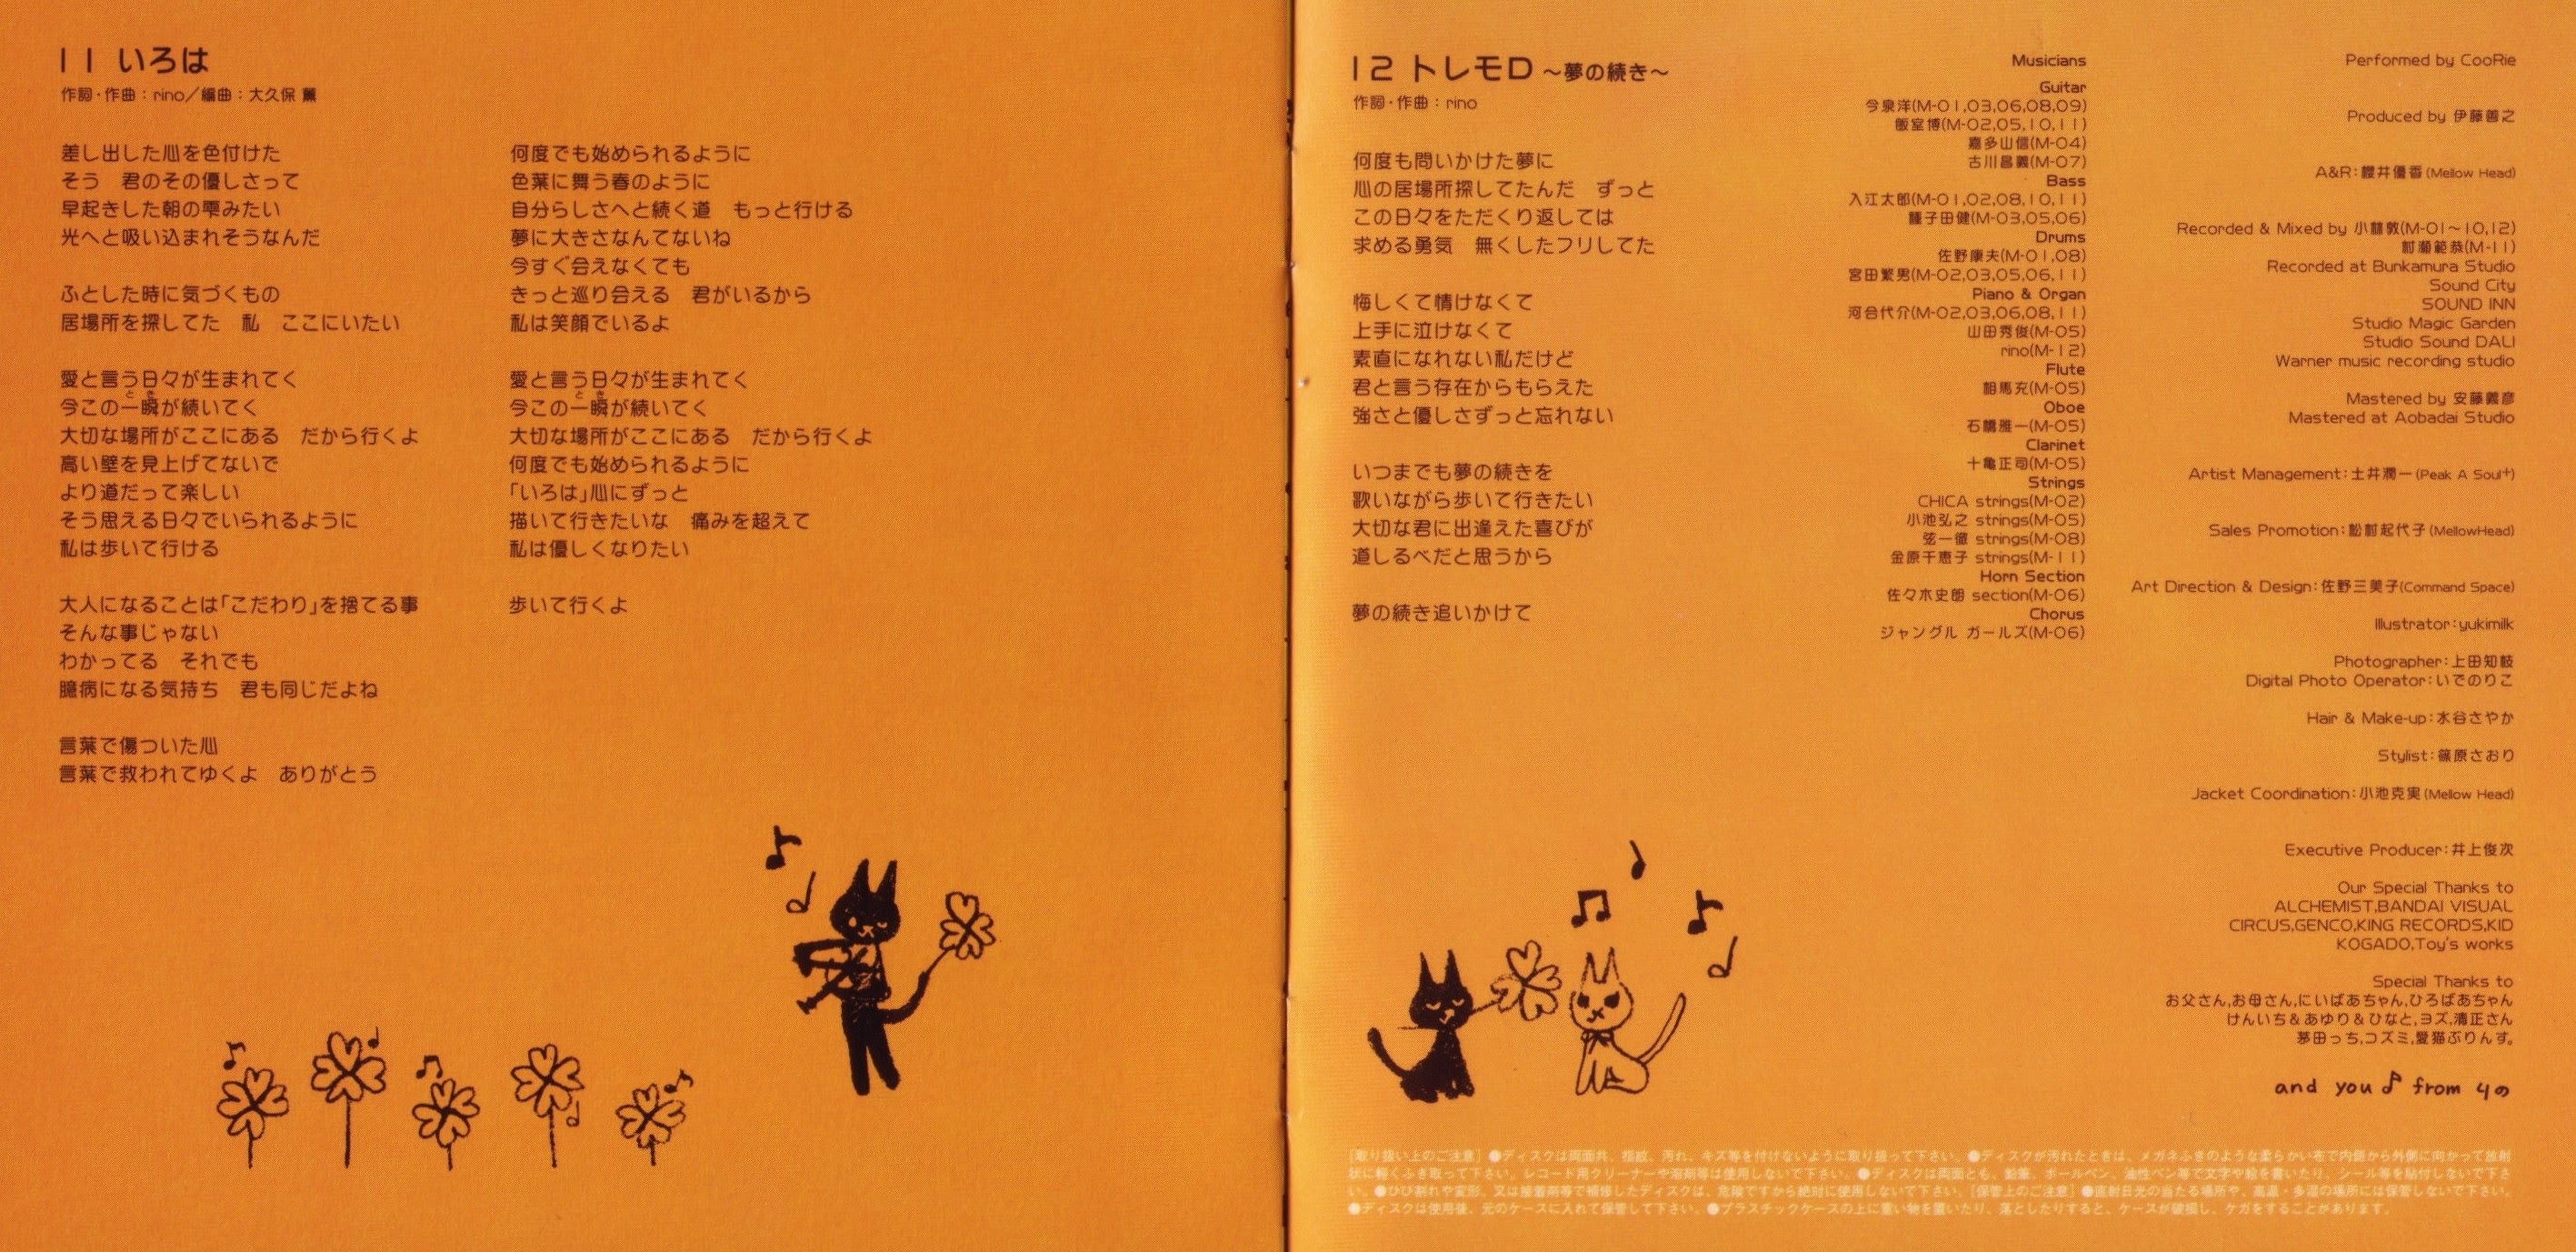 11 いろは
作詞・作曲：rino／編曲：大久保 薫
差し出した心を色付けた
そう　君のその優しさって
早起きした朝の雫みたい
光へと吸い込まれそうなんだ
ふとした時に気づくもの
居場所を探してた　私　ここにいたい
愛と言う日々が生まれてく
とき
今この一瞬が続いてく
大切な場所がここにある　だから行くよ
高い壁を見上げてないで
より道だって楽しい
そう思える日々でいられるように
私は歩いて行ける
大人になることは「こだわり」を捨てる事
そんな事じゃない
わかってる　それでも
臆病になる気持ち　君も同じだよね
言葉で傷ついた心
言葉で救われてゆくよ　ありがとう
何度でも始められるように
色葉に舞う春のように
自分らしさへと続く道　もっと行ける
夢に大きさなんてないね
今すぐ会えなくても
きっと巡り会える　君がいるから
私は笑顔でいるよ
愛と言う日々が生まれてく
とき
今この一瞬が続いてく
大切な場所がここにある　だから行くよ
何度でも始められるように
「いろは」心にずっと
描いて行きたいな　痛みを超えて
私は優しくなりたい
歩いて行くよ
12 トレモD ～夢の続き～
作詞・作曲：rino
何度も問いかけた夢に
心の居場所探してたんだ　ずっと
この日々をただくり返しては
求める勇気　無くしたフリしてた
悔しくて情けなくて
上手に泣けなくて
素直になれない私だけど
君と言う存在からもらえた
強さと優しさずっと忘れない
いつまでも夢の続きを
歌いながら歩いて行きたい
大切な君に出逢えた喜びが
道しるべだと思うから
夢の続き追いかけて
Musicians
Guitar
今泉洋(M-01,03,06,08,09)
飯室博(M-02,05,10,11)
嘉多山信(M-04)
古川昌義(M-07)
Bass
入江太郎(M-01,02,08,10,11)
種子田健(M-03,05,06)
Drums
佐野康夫(M-01,08)
宮田繁男(M-02,03,05,06,11)
Piano & Organ
河合代介(M-02,03,06,08,11)
山田秀俊(M-05)
rino(M-12)
Flute
相馬充(M-05)
Oboe
石橋雅一(M-05)
Clarinet
十亀正司(M-05)
Strings
CHICA strings(M-02)
小池弘之 strings(M-05)
弦一徹 strings(M-08)
金原千恵子 strings(M-11)
Horn Section
佐々木史朗 section(M-06)
Chorus
ジャングル ガールズ(M-06)
Performed by CooRie
Produced by 伊藤善之
A&R：櫻井優香(Mellow Head)
Recorded & Mixed by 小林敦(M-01～10,12)
村瀬範恭(M-11)
Recorded at Bunkamura Studio
Sound City
SOUND INN
Studio Magic Garden
Studio Sound DALI
Warner music recording studio
Mastered by 安藤義彦
Mastered at Aobadai Studio
Artist Management：土井潤一(Peak A Soul+)
Sales Promotion：松村起代子(MellowHead)
Art Direction & Design：佐野三美子(Command Space)
Illustrator：yukimilk
Photographer：上田知枝
Digital Photo Operator：いでのりこ
Hair & Make-up：水谷さやか
Stylist：篠原さおり
Jacket Coordination：小池克実(Mellow Head)
Executive Producer：井上俊次
Our Special Thanks to
ALCHEMIST,BANDAI VISUAL
CIRCUS,GENCO,KING RECORDS,KID
KOGADO,Toy's works
Special Thanks to
お父さん,お母さん,にいばあちゃん,ひろばあちゃん
けんいち＆あゆり＆ひなと,ヨズ,清正さん
茅田っち,コズミ,愛猫ぷりんす。
and you♪ from りの
[取り扱い上のご注意] ●ディスクは両面共、指紋、汚れ、キズ等を付けないように取り扱って下さい。●ディスクが汚れたときは、メガネふきのような柔らかい布で内側から外側に向かって放射
状に軽くふき取って下さい。レコード用クリーナーや溶剤等は使用しないで下さい。●ディスクは両面とも、鉛筆、ボールペン、油性ペン等で文字や絵を書いたり、シール等を貼付しないで下さ
い。●ひび割れや変形、又は接着剤等で補修したディスクは、危険ですから絶対に使用しないで下さい。[保管上のご注意] ●直射日光の当たる場所や、高温・多湿の場所には保管しないで下さい。
●ディスクは使用後、元のケースに入れて保管して下さい。●プラスチックケースの上に重い物を置いたり、落としたりすると、ケースが破損し、ケガをすることがあります。